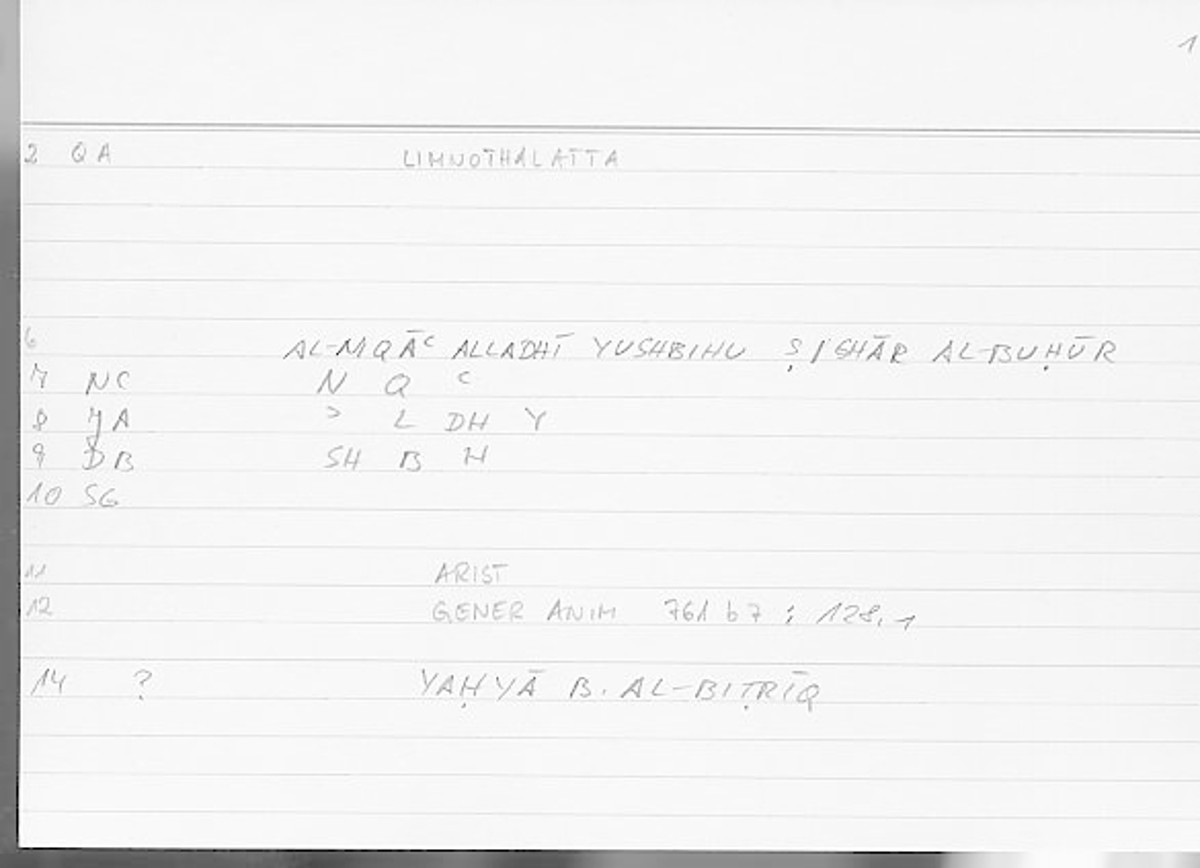 1
2 QA LIMNOTHALATTA
6 AL-NQĀʿ ALLADHĪ YUSHBIHU ṢIGHĀR AL-BUḤŪR
7 NC N Q ʿ
8 JA ʾ L DH Y
9 DB SH B H
10 SG
11 ARIST
12 GENER ANIM 761 b 7 ; 128,1
14 ? YAḤYĀ B. AL-BIṬRĪQ